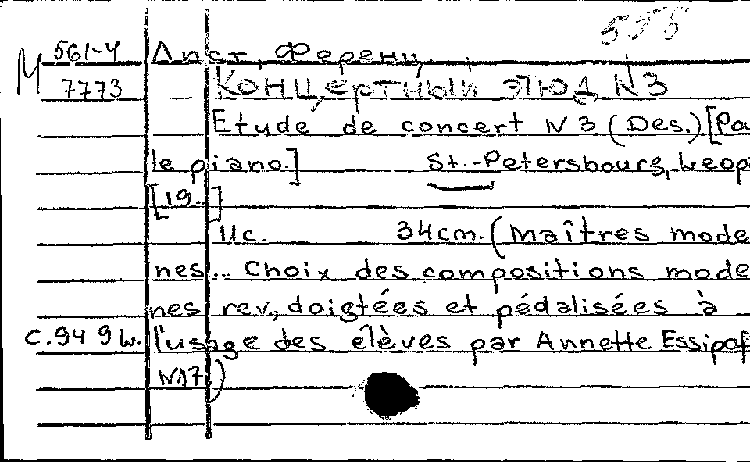 555
М 561-4 Лист, Ференц.
7773 Концертный этюд N3
Etude de concert N 3 (Des.) [Po
le piano.] St.-Petersbourg, Leop
[19..]
11c. 34cm. (Maîtres mode
nes... Choix des compositions mode
nes rev., doigtées et pédalisées à
C.949 w. l'usage des élèves par Annette Essipof
N17)